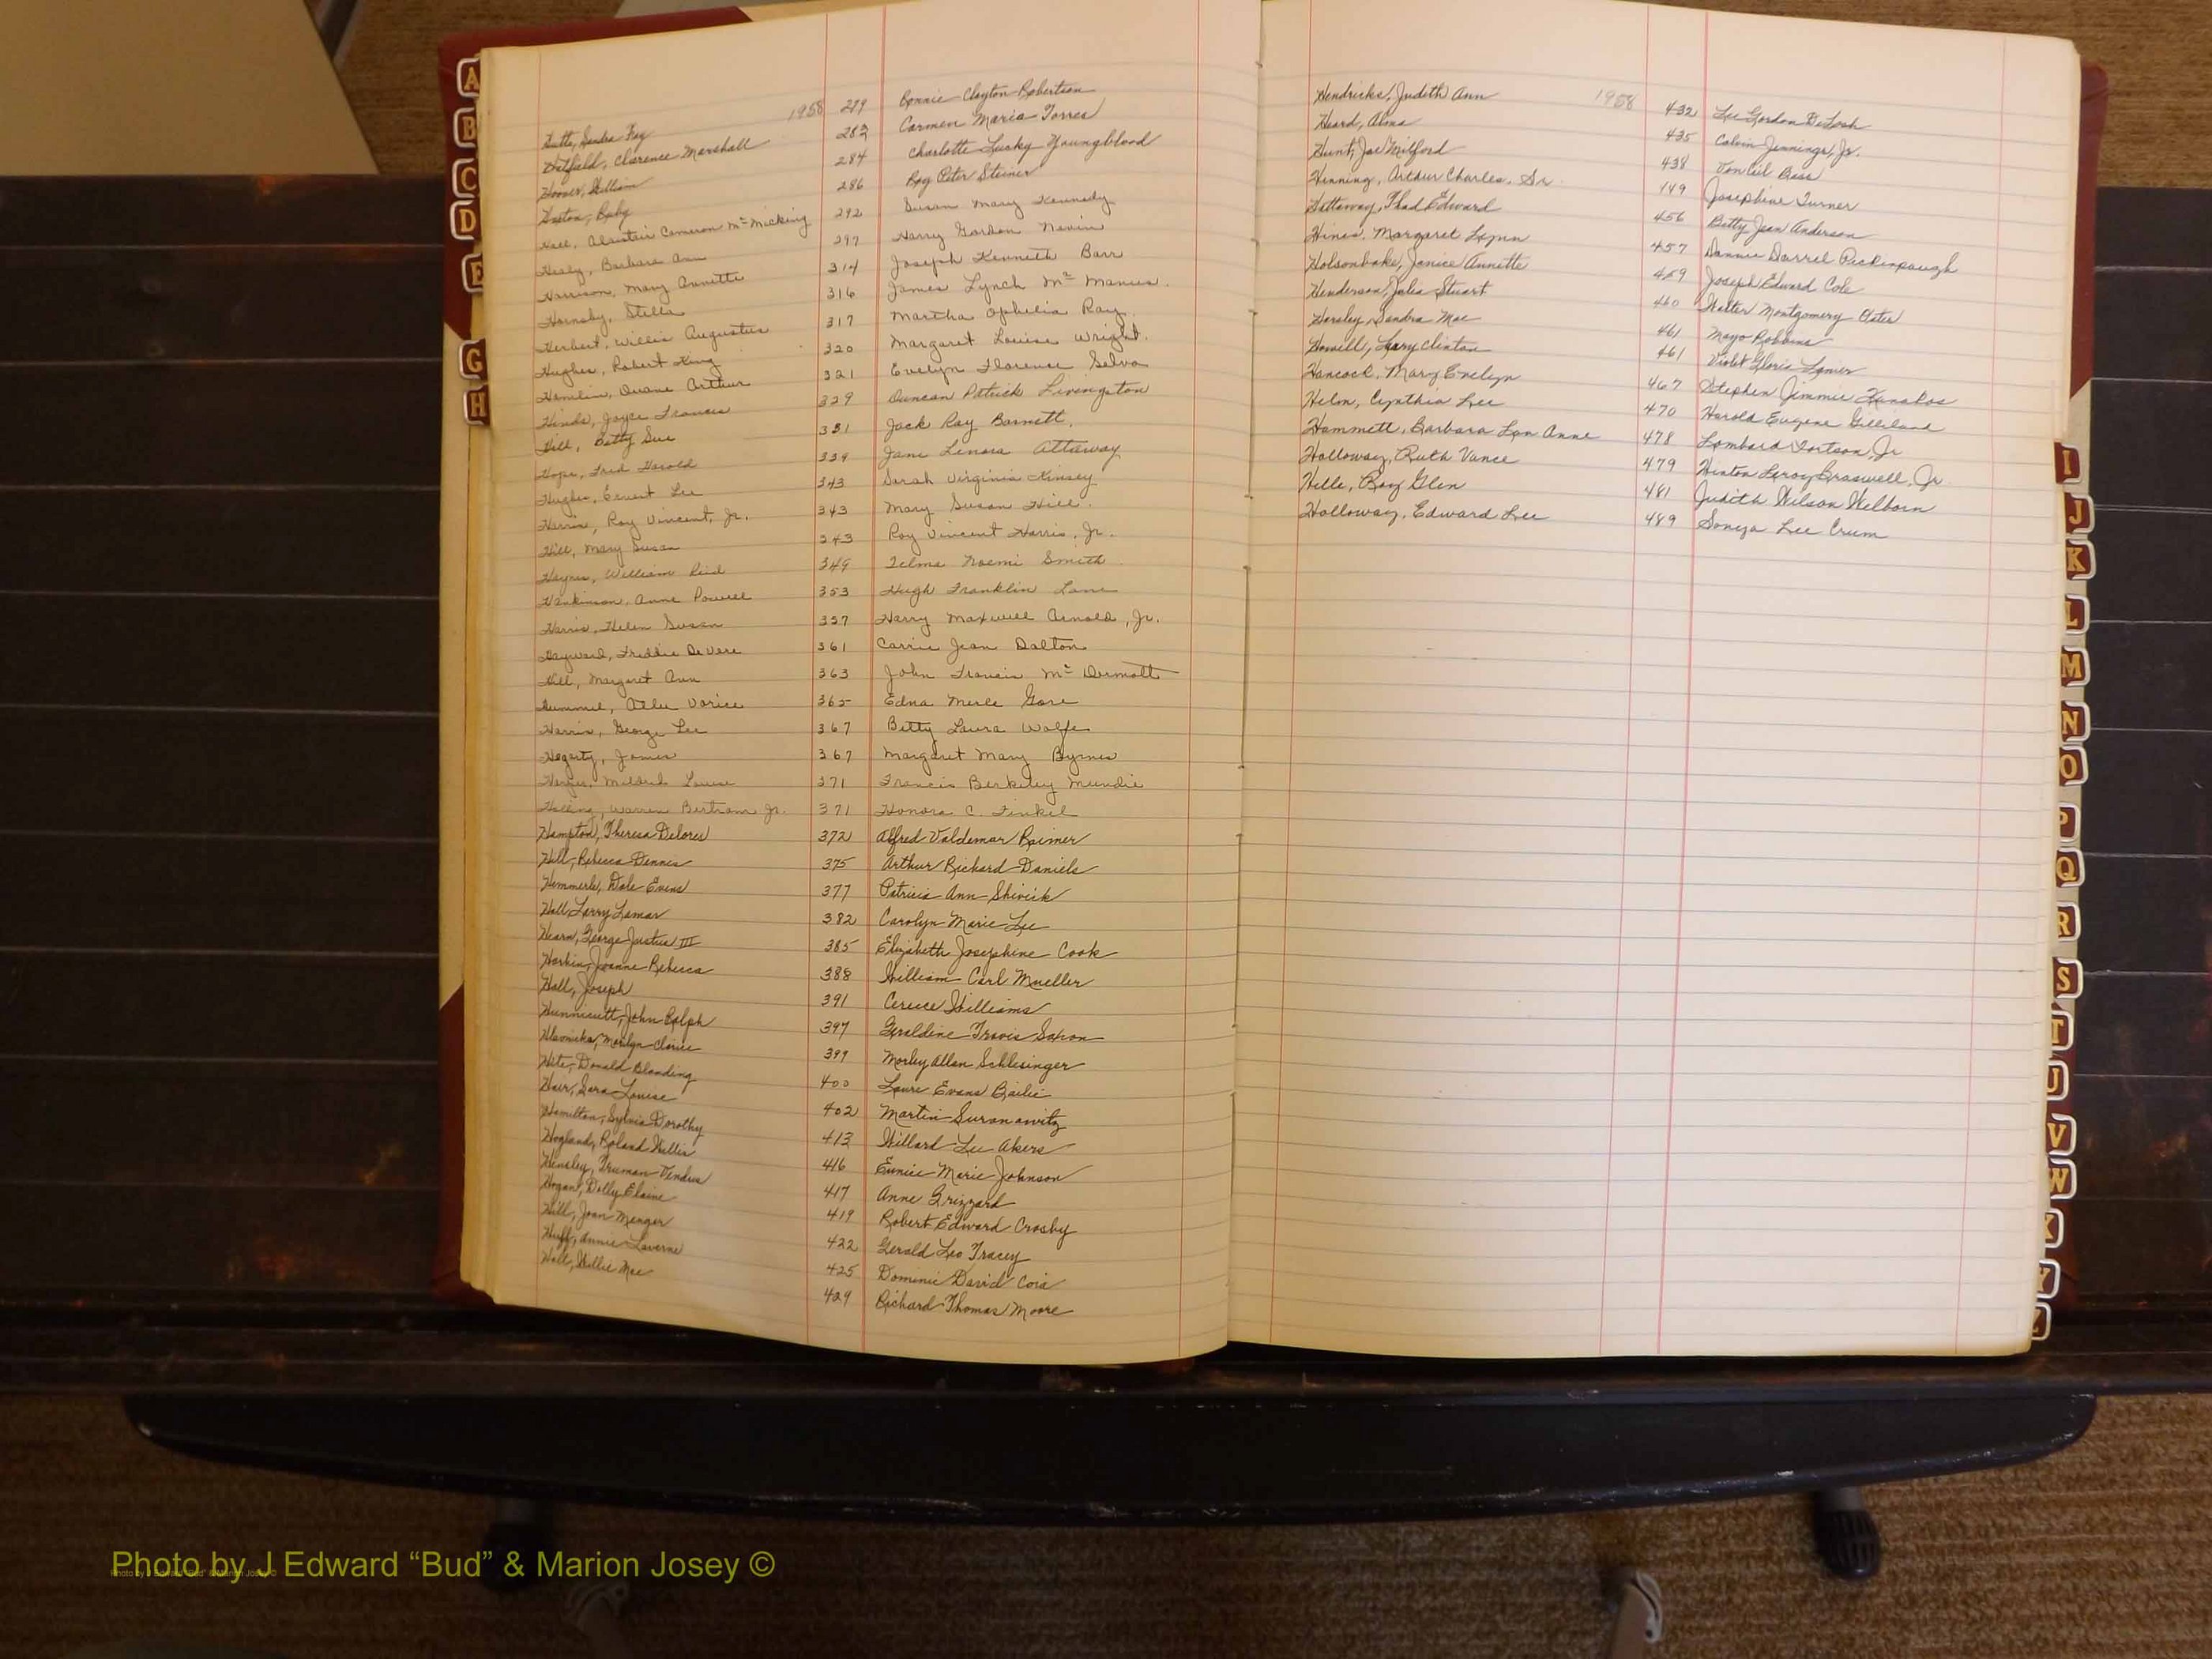 1958
Hutto, Sandra Fay 279 Bonnie Clayton Robertson
Hatfield, Clarence Marshall 282 Carmen Maria Torres
Hoover, William 284 Charlotte Lucky Youngblood
Heston, Ruby 286 Roy Peter Steiner
Hall, Alaistair Cameron McMicking 292 Susan Mary Kennedy
Healy, Barbara Ann 297 Harry Gordon Nevin
Harrison, Mary Annette 314 Joseph Kenneth Barr
Hornsby, Stella 316 James Lynch McManus.
Herbert, Willis Augustus 317 Martha Ophelia Ray
Hughes, Robert King 320 Margaret Louise Wright.
Hamlin, Duane Arthur 321 Evelyn Florence Selvo
Hinds, Joyce Frances 329 Duncan Patrick Livingston
Hill, Betty Sue 331 Jack Ray Barnett.
Hope, Fred Harold 339 Jane Lenora Attaway
Hughes, Ernest Lee 343 Sarah Virginia Kinsey
Harris, Roy Vincent, Jr. 343 Mary Susan Hill.
Hill, Mary Susan 343 Roy Vincent Harris, Jr.
Haynes, William Reid 349 Telma Noemi Smith
Hankinson, Anne Powell 353 Hugh Franklin Lane
Harris, Helen Susan 357 Harry Maxwell Arnold, Jr.
Hayward, Freddie DeVere 361 Carrie Jean Dalton
Hill, Margaret Ann 363 John Francis McDermott
Hummel, Atlee Vorice 365 Edna Merle Gore
Harris, George Lee 367 Betty Laura Wolfe
Hegarty, James 367 Margaret Mary Byrnes
Mildred Louise 371 Francis Berkeley Mundie
Warren Bertram Jr. 371 Honora C. Finkel
Hampton, Theresa Delores 372 Alfred Valdemar Reimer
Hill, Rebecca Dennis 375 Arthur Richard Daniels
Hemmerle, Dale Evans 377 Patricia Ann
Hall, Larry Lamar 382 Carolyn Marie Lee
Hearn, George Justus III 385 Elizabeth Josephine Cook
Harbin, Joanne Rebecca 388 William Carl Mueller
Hall, Joseph 391 Williams
Hunnicutt, John Ralph 397 Geraldine Travis Saxon
Marilyn Clarice 399 Morley Allan Schlesinger
Hite, Donald Blanding 400 Laurie Evans Bailie
Hair, Sara Louise 402 Martin
Hamilton, Sylvia Dorothy 413 Willard Lee Akers
Hogland, Roland Willis 416 Eunice Marie Johnson
Hensley, Truman 417 Anne Grizzard
Hogan, Dolly Elaine 419 Robert Edward Crosby
Hill, Joan Menger 422 Gerald Leo Tracey
Huff, Annie Laverne 425 Dominic David Coia
Hall, Willie Mae 429 Richard Thomas Moore
1958
Hendricks, Judith Ann 432 Lee Gordon DeLoch
Heard, Alma 435 Calvin Jennings, Jr.
Hunt, Joe Milford 438 Vonceil Bass
Henning, Arthur Charles, Sr. 449 Josephine Turner
Hattaway, Thad Edward 456 Betty Jean Anderson
Hines, Margaret Lynn 457 Dannie Darrel Peckenpaugh
Holsonbake, Janice Annette 459 Joseph Edward Cole
Henderson, Julia Stuart 460 Walter Montgomery
Horsley, Sandra Mae 461 Mayo Robbins
Howell, Gary Clinton 461 Violet Gloria Lanier
Hancock, Mary Evelyn 467 Stephen Jimmie Kanakos
Helm, Cynthia Lee 470 Harold Eugene Gilliland
Hammett, Barbara Lou Anne 478 Lombard Fortson, Jr
Holloway, Ruth Vance 479 Hinton Leroy Braswell, Jr.
Helle, Roy Glen 481 Judith Wilson Welborn
Holloway, Edward Lee 489 Sonya Lee Crum
A
B
C
D
E
G
H
I
J
K
L
M
N
O
P
Q
R
S
T
U
V
W
X
Y
Z
Photo by J Edward “Bud” & Marion Josey ©
Photo by J Edward "Bud" & Marion Josey ©